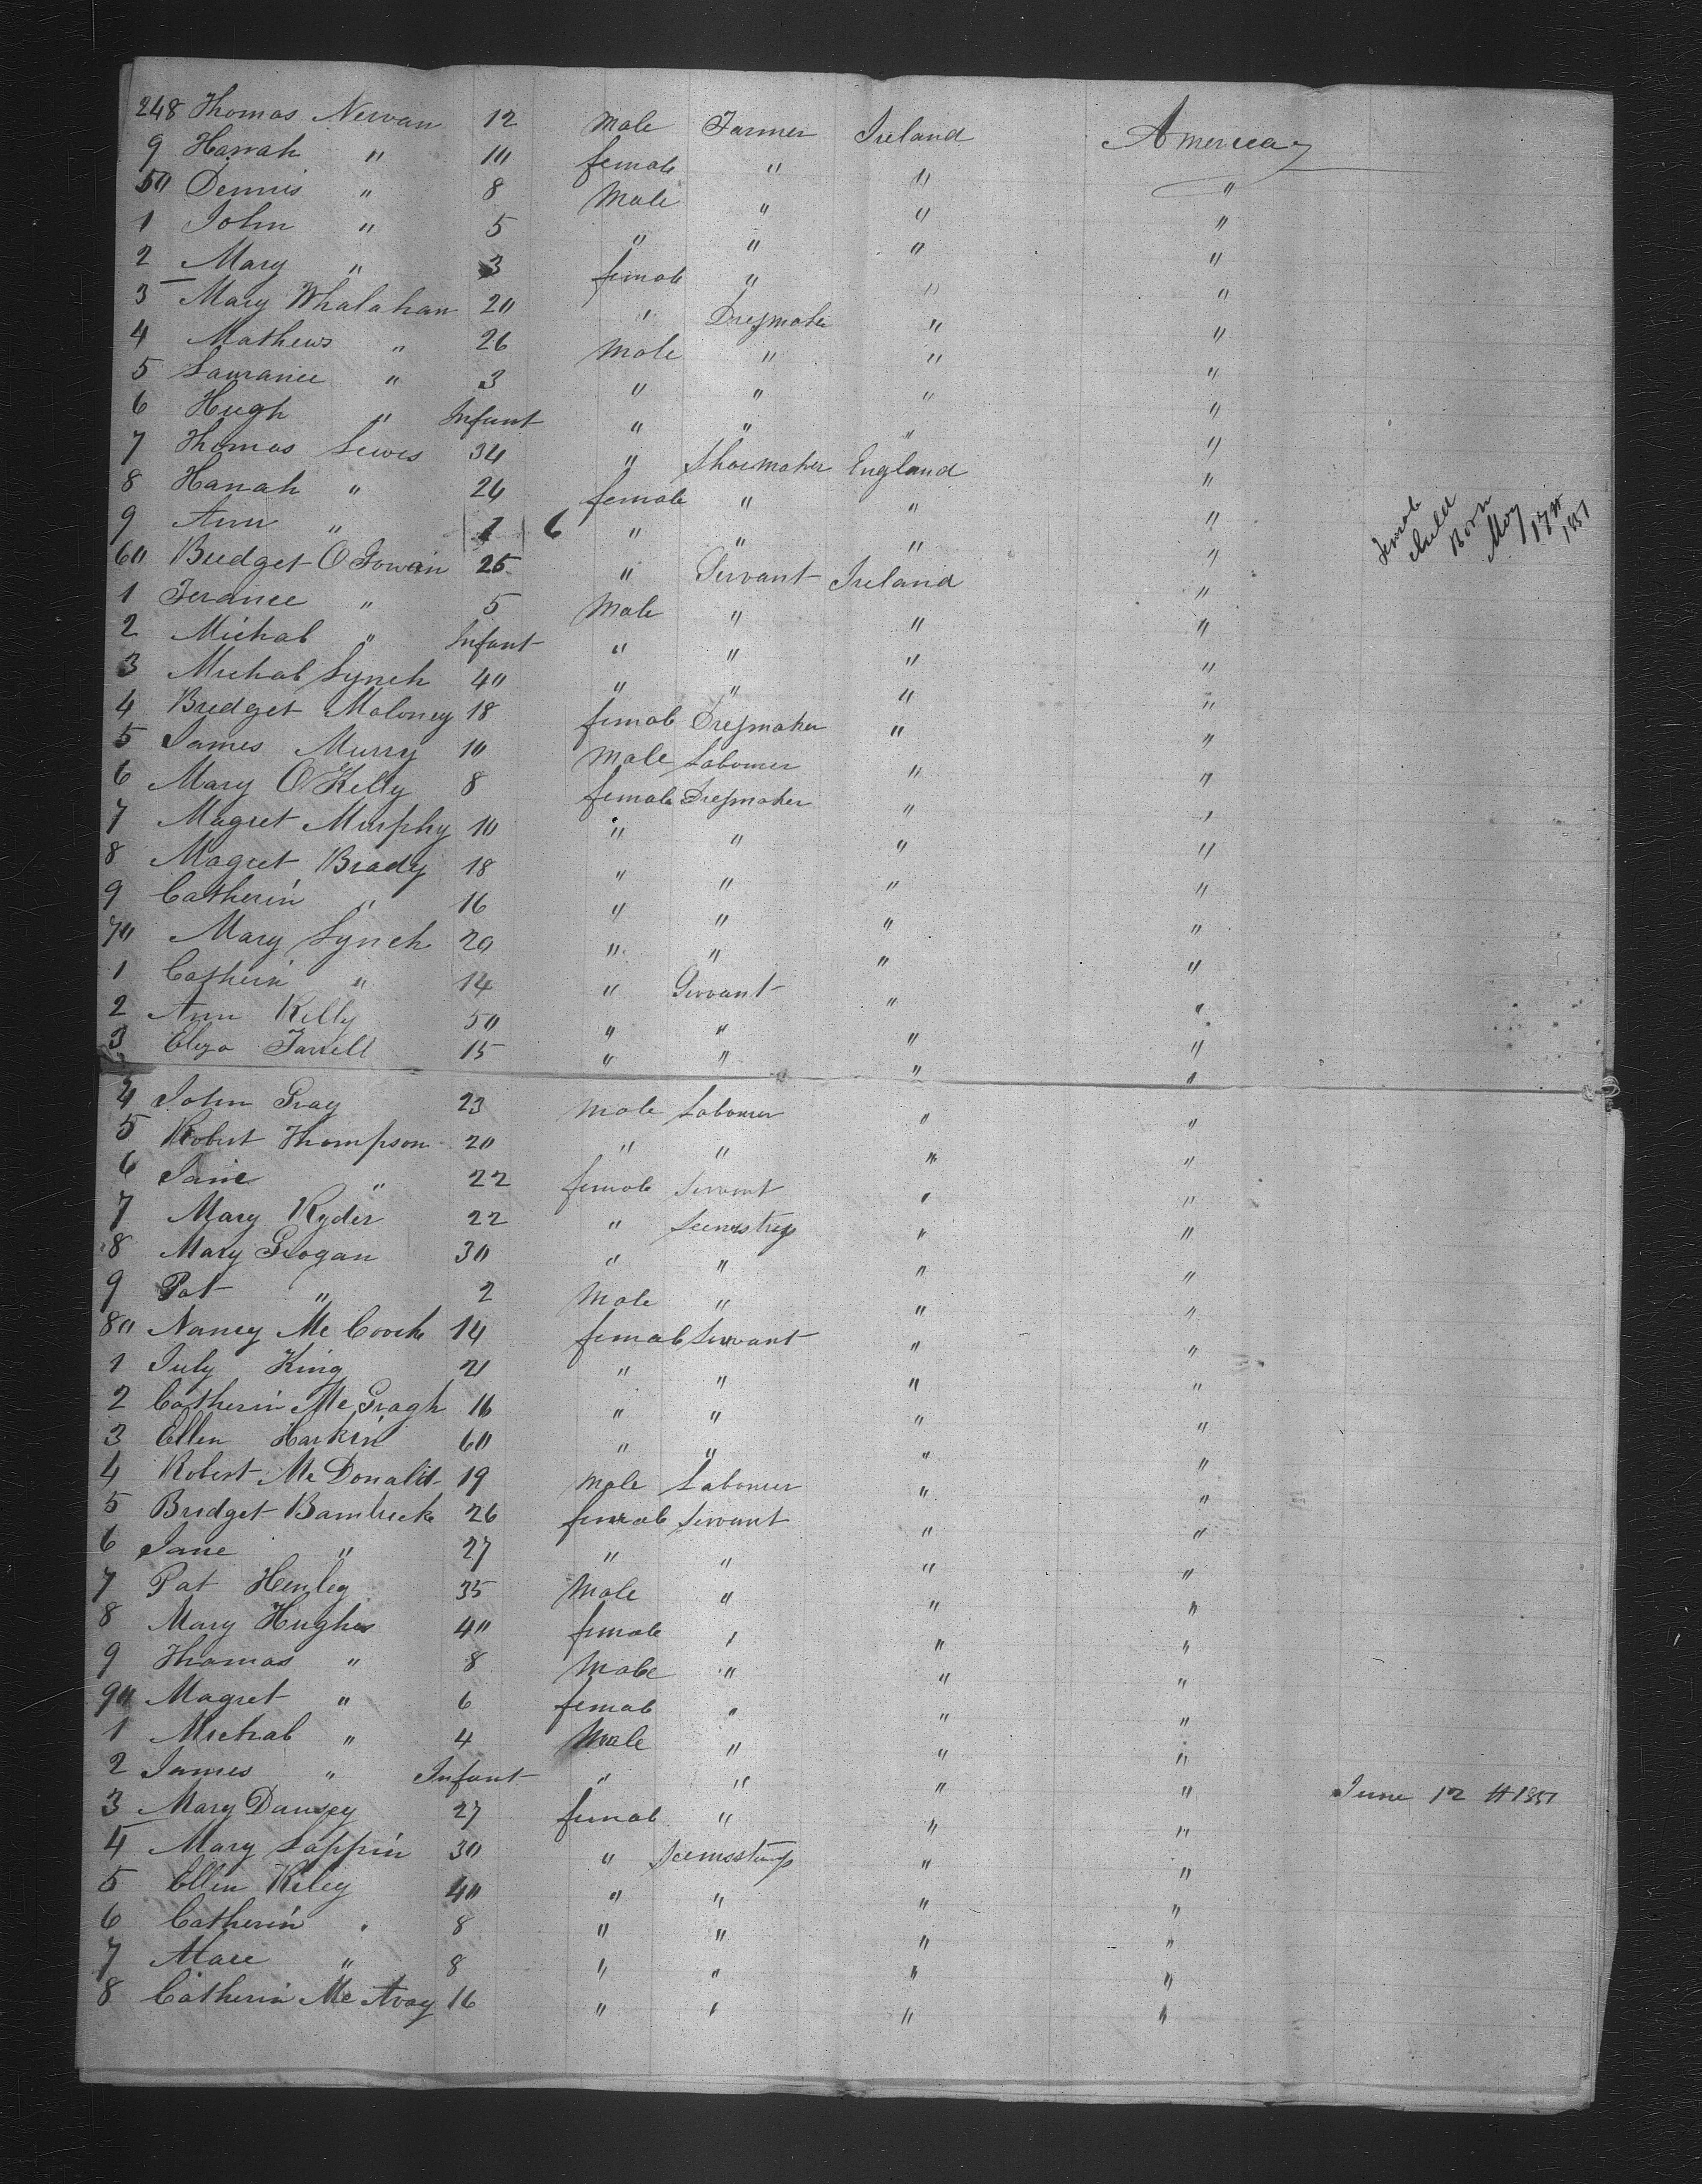 248 Thomas Nervan 12 Male Farmer Ireland America
9 Hanah " 10 female " " "
50 Dennis " 8 Male " " "
1 John " 5 " " " "
2 Mary " 3 female " " "
3 Mary Whalahan 20 " Dressmaker " "
4 Mathews " 26 Male " " "
5 Laurance " 3 " " " "
6 Hugh " Infant " " " "
7 Thomas Lewis 34 " Shoemaker England "
8 Hanah " 24 female " " "
9 Ann " 1 6 " " " "
female Child Born May 17th 1851
60 Bridget O 25 " Servant Ireland "
1 Terance " 5 Male " " "
2 Michal " Infant " " " "
3 Michal Lynch 40 " " " "
4 Bridget Maloney 18 female Dressmaker " "
5 James Murry 10 Male Labourer " "
6 Mary O Kelly 8 female Dressmaker " "
7 Magret Murphy 10 " " " "
8 Magret Brady 18 " " " "
9 Catherin " 16 " " " "
70 Mary Lynch 20 " " " "
1 Catherin " 14 " Servant " "
2 Ann Kelly 50 " " " "
3 Eliza Farrell 15 " " " "
4 John Gray 23 Male Labourer " "
5 Robert Thompson 20 " " " "
6 Jane " 22 female Servant " "
7 Mary Ryder 22 " Seemstress " "
8 Mary Grogan 30 " " " "
9 Pat " 2 Male " " "
80 Nancy Mc 14 female Servant " "
1 July King 21 " " " "
2 Catherin Mc Gragh 16 " " " "
3 Ellen Harkin 60 " " " "
4 Robert Mc Donald 19 Male Labourer " "
5 Bridget Bambrick 26 female Servant " "
6 Jane " 27 " " " "
7 Pat Henley 35 Male " " "
8 Mary Hughes 40 female " " "
9 Thomas " 8 Male " " "
90 Magret " 6 female " " "
1 Michal " 4 Male " " "
2 James " Infant " " " " June 12 th 1851
3 Mary Dansey 27 female " " "
4 Mary Lappin 30 " Seemsstress " "
5 Ellen Riley 40 " " " "
6 Catherin " 8 " " " "
7 " 8 " " " "
8 Catherin Mc Avoy 16 " " " "